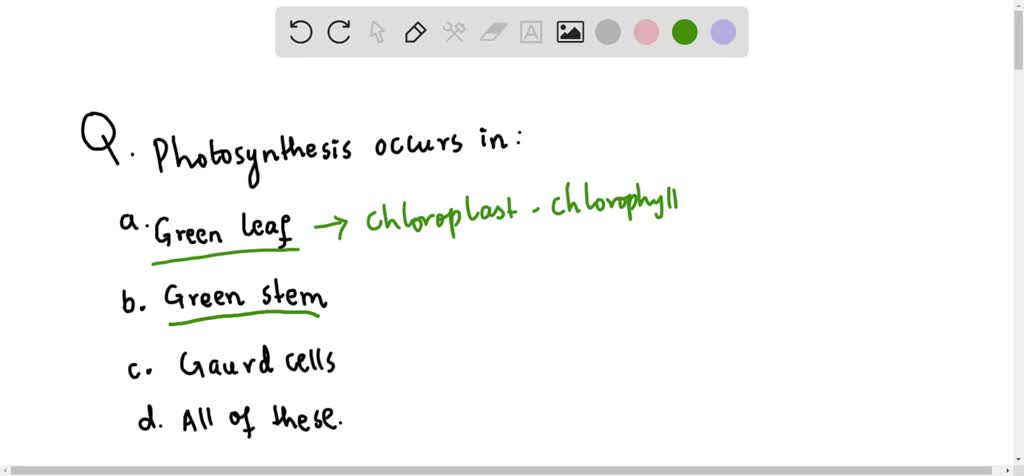 Q. Photosynthesis occurs in:
a. Green leaf → chloroplast - chlorophyll
b. Green stem
c. Gaurd cells
d. All of these.